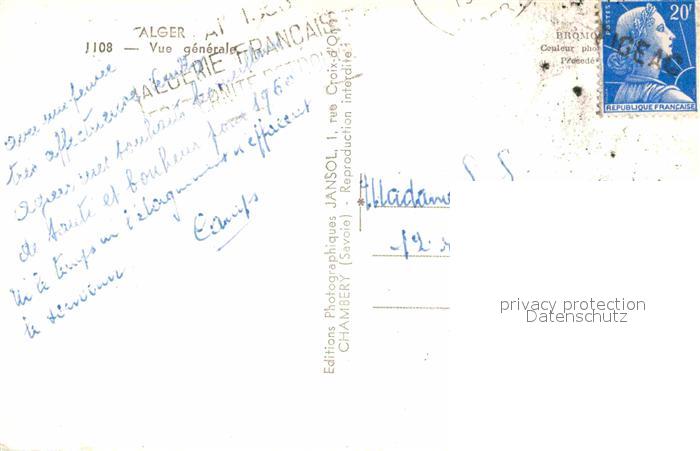 ALGER
1108 — Vue générale
ALGÉRIE FRANÇAISE
avec une pensée
très affectueuse
agréez mes souhaits
de santé et bonheur pour 1960
Ni le temps ni l'éloignement n'effacent
le souvenir
Camps
Editions Photographiques JANSOL, 1, rue Croix-d'Or
CHAMBERY (Savoie) - Reproduction interdite
BROMO
Couleur pho
Procédé
POSTES
20F
IGEAC
REPUBLIQUE FRANÇAISE
Madame
12
privacy protection
Datenschutz